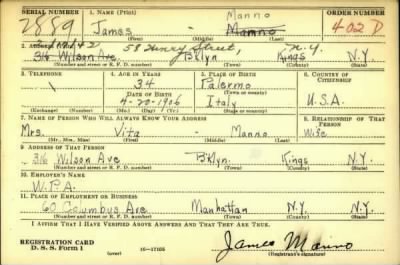 SERIAL NUMBER 1. NAME (Print) ORDER NUMBER
Manno
2889 James - Manno 402 D
(First) (Middle) (Last)
58 Henry Street, N.Y.
316 Wilson Ave Bklyn Kings N.Y.
(Number and street or R. F. D. number) (Town) (County) (State)
3. TELEPHONE 4. AGE IN YEARS 5. PLACE OF BIRTH 6. COUNTRY OF CITIZENSHIP
34 Palermo
DATE OF BIRTH (Town or county)
4-20-1906 Italy U.S.A.
(Exchange) (Number) (Mo.) (Day) (Yr.) (State or country)
7. NAME OF PERSON WHO WILL ALWAYS KNOW YOUR ADDRESS 8. RELATIONSHIP OF THAT PERSON
Mrs. Vita - Manno Wife
(Mr., Mrs., Miss) (First) (Middle) (Last)
9. ADDRESS OF THAT PERSON
316 Wilson Ave Bklyn. Kings N.Y.
(Number and street or R. F. D. number) (Town) (County) (State)
10. EMPLOYER'S NAME
W.P.A.
11. PLACE OF EMPLOYMENT OR BUSINESS
60 Columbus Ave Manhattan N.Y. N.Y.
(Number and street or R. F. D. number) (Town) (County) (State)
I AFFIRM THAT I HAVE VERIFIED ABOVE ANSWERS AND THAT THEY ARE TRUE.
REGISTRATION CARD
D. S. S. Form 1 (over) 16-17105 James Manno
(Registrant's signature)